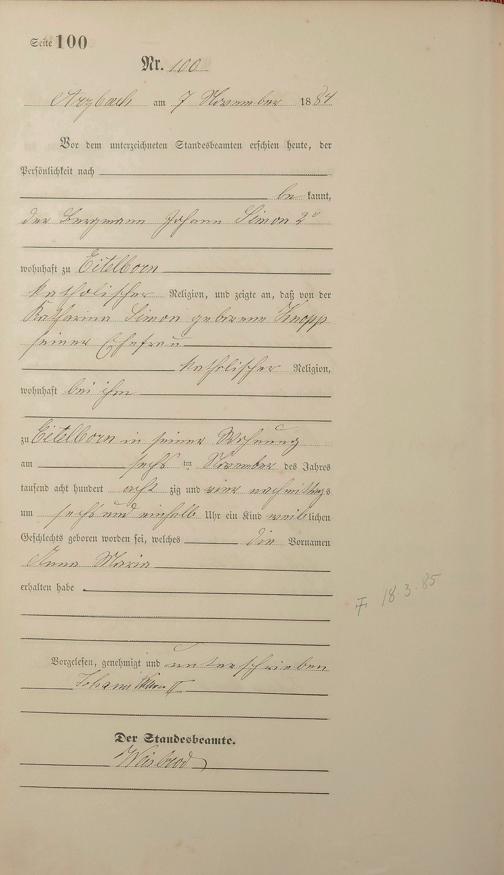 Seite 100
Nr. 100
Arzbach am 7 November 1884
Vor dem unterzeichneten Standesbeamten erschien heute, der
Persönlichkeit nach
bekannt,
der Bergmann Johann Simon 2r
wohnhaft zu Eitelborn
katholischer Religion, und zeigte an, daß von der
Katharina Simon geborene Knopp
seiner Ehefrau
katholischer Religion,
wohnhaft bei ihm
zu Eitelborn in seiner Wohnung
am sechs ten November des Jahres
tausend acht hundert acht zig und vier nachmittags
um sechs und einhalb Uhr ein Kind weiblichen
Geschlechts geboren worden sei, welches die Vornamen
Anna Maria
erhalten habe
18.3.85
Vorgelesen, genehmigt und unterschrieben
Johann Simon II
Der Standesbeamte.
Weisbrod